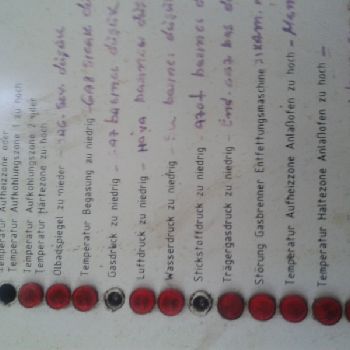 Temperatur Aufheizzone oder
Temperatur Aufkohlungszone 1 zu hoch
Temperatur Aufkohlungszone 2 oder
Temperatur Härtezone zu hoch
Ölbadspiegel zu nieder - yağ sev. düşük
Temperatur Begasung zu niedrig -
Gasdruck zu niedrig - gaz basıncı düşük
Luftdruck zu niedrig - Hava basıncı
Wasserdruck zu niedrig - Su basıncı düşük
Stickstoffdruck zu niedrig - azot basıncı
Trägergasdruck zu niedrig - End. gaz bas
Störung Gasbrenner Entfettungsmaschine
Temperatur Aufheizzone Anlaßofen zu hoch -
Temperatur Haltezone Anlaßofen zu hoch -